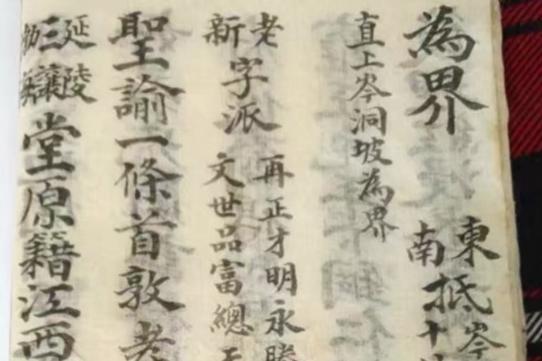 為界 東南抵岑十
直上岑洞坡為界
老新字派 再正才明永勝
文世品富總
聖諭一條首敦孝
延陵三讓堂原籍江西